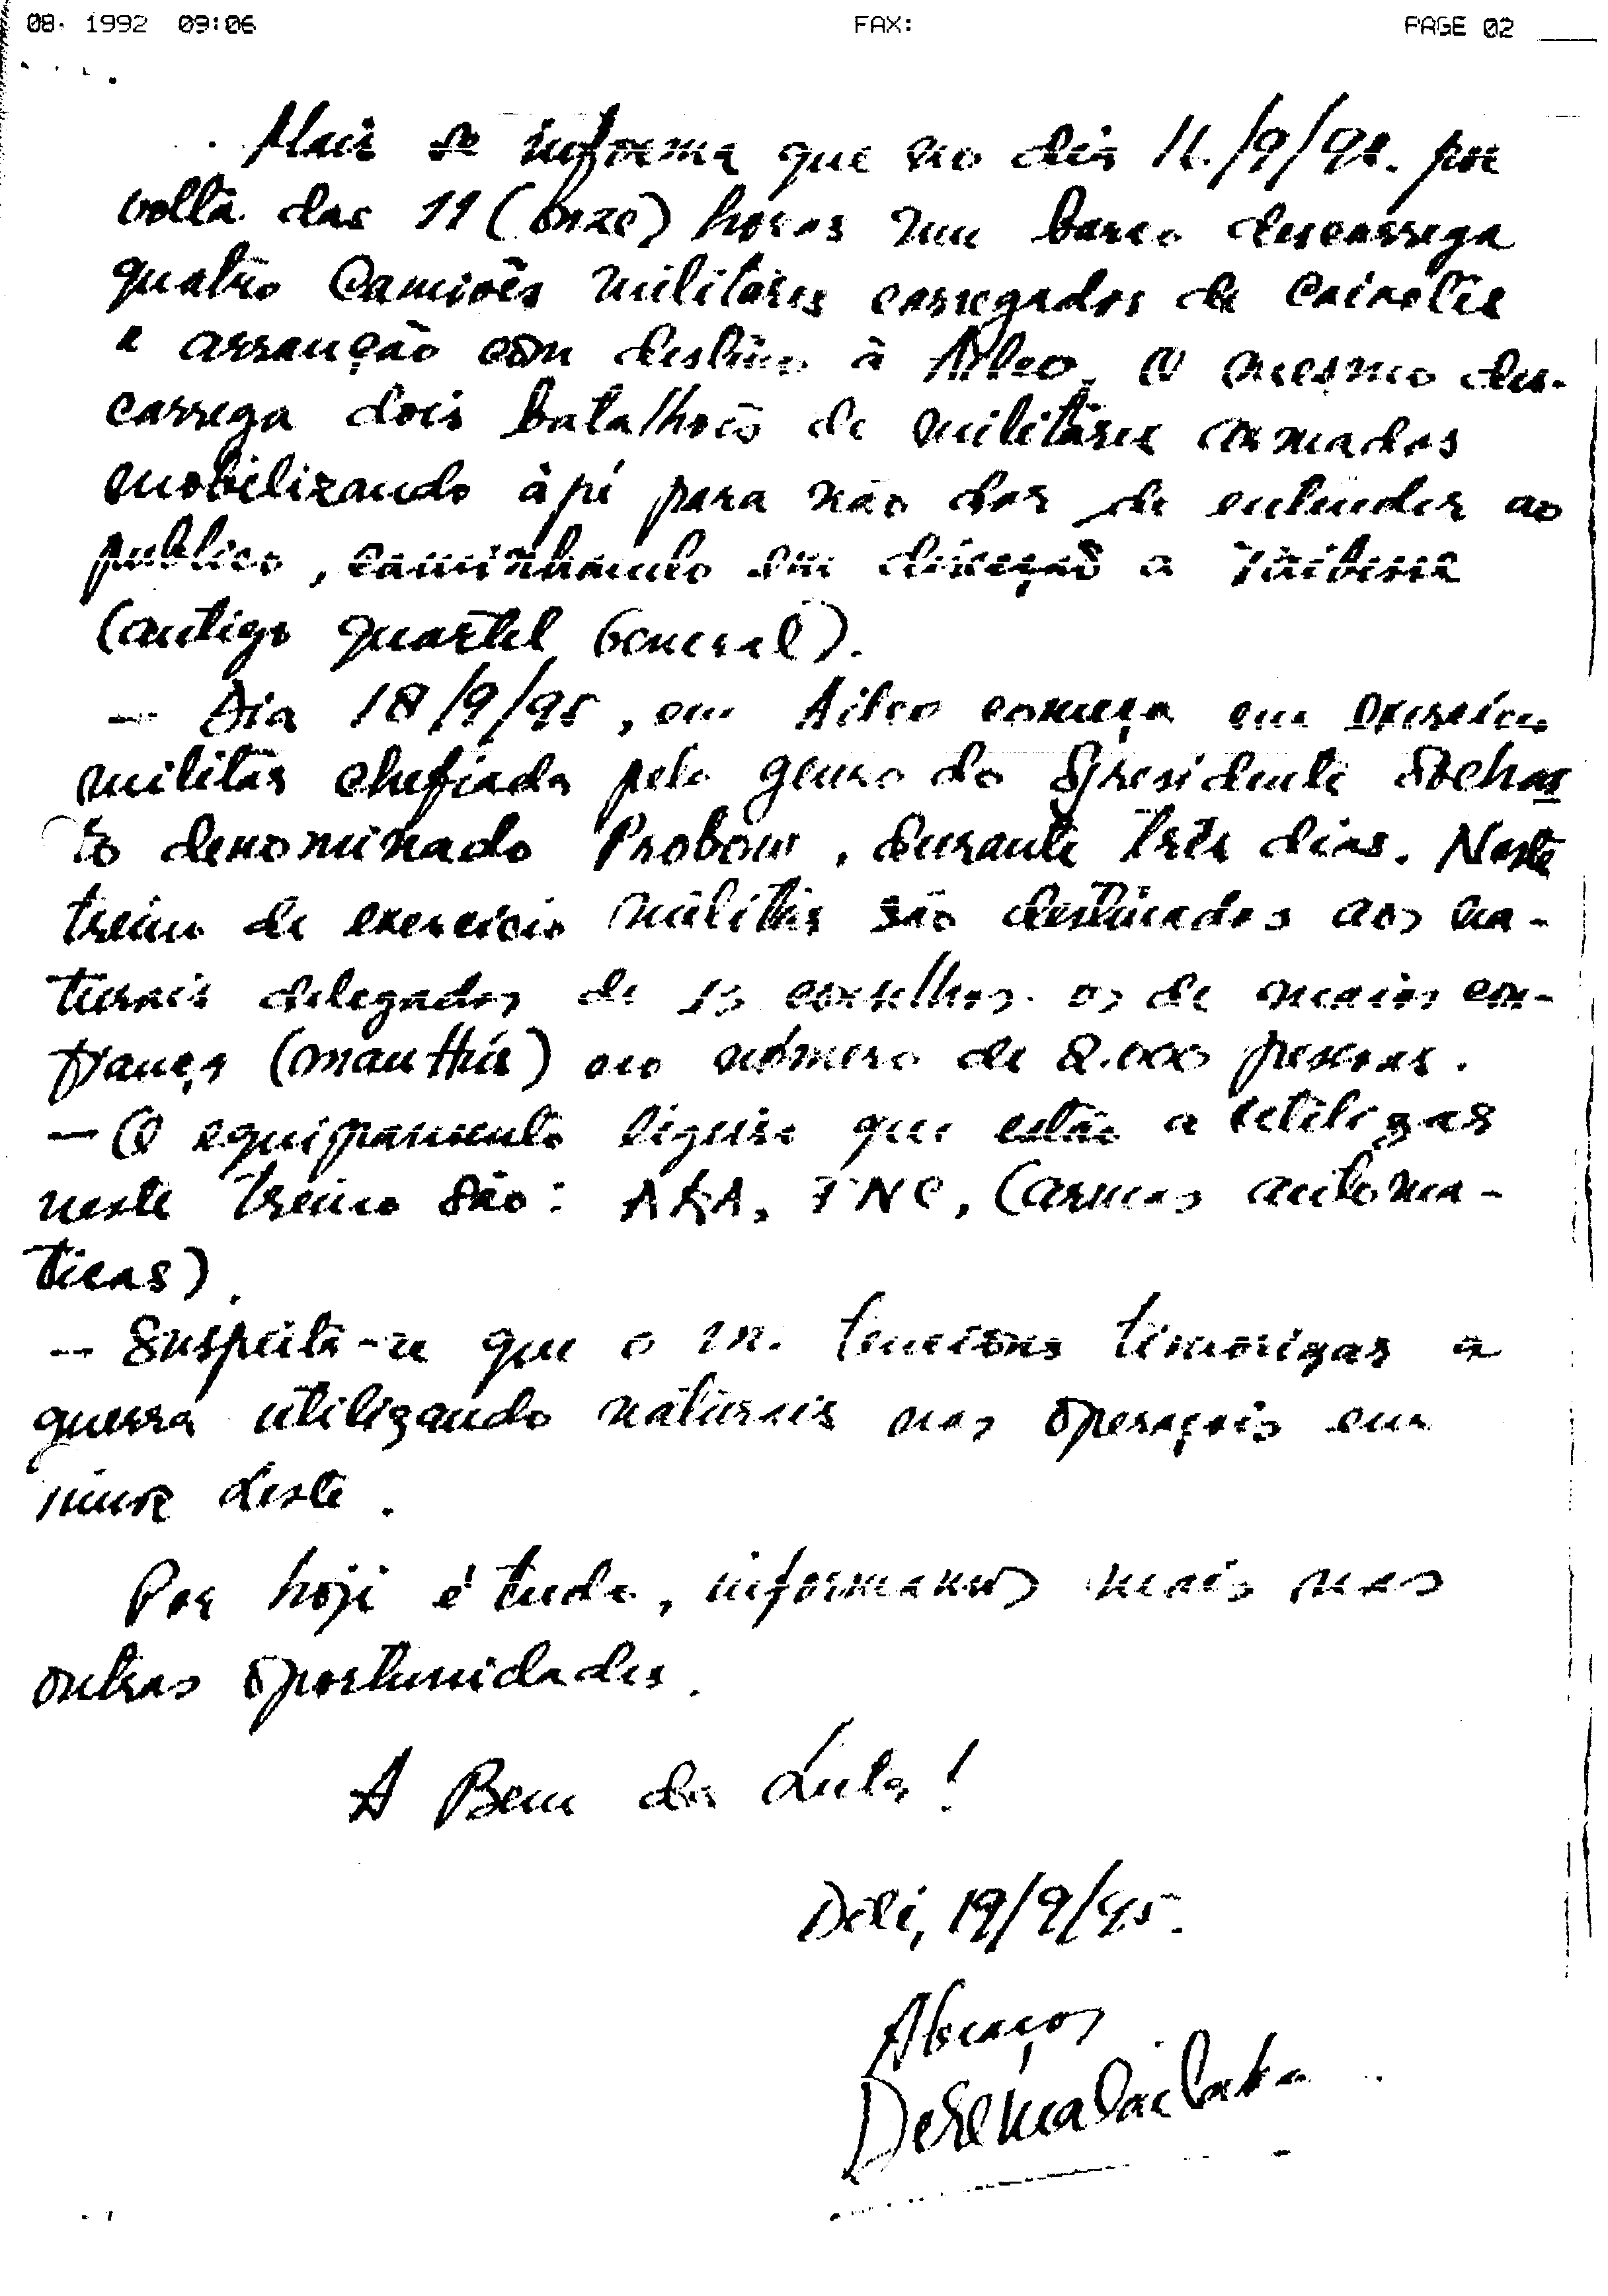 08. 1992 09:06 FAX: PAGE 02
Mais se informa que no dia /9/9 . por
volta das 11 (onze) horas num barco descarrega
quatro Camiões militares carregados de caixotes
e arranção com destino à Aileo. O mesmo des-
carrega dois batalhões de militares armados
mobilizando à pé para não dar de entender ao
publico, caminhando em direção a Taibesse
(antigo quartel General).
— Dia 18/9/95, em Aileo começa em
militar chefiada pelo genro do Spresidente Sohar
to denominado Probow, durante três dias. Neste
treino de exercicio militar são destinados aos na-
turais delegados de 13 conselhos os de maior con-
fiança (manthir) no número de 2.000 pessoas.
— O equipamento ligeiro que estão a utilizar
neste treino são: AKA, FNC, (armas automa-
ticas).
— Suspeita-se que o in. tenciona timorizar a
guerra utilizando naturais nas operações em
deste.
Por hoje é tudo, informamos mais nas
outras oportunidades.
A Bem da Luta!
Dili, 19/9/95.
Abraços